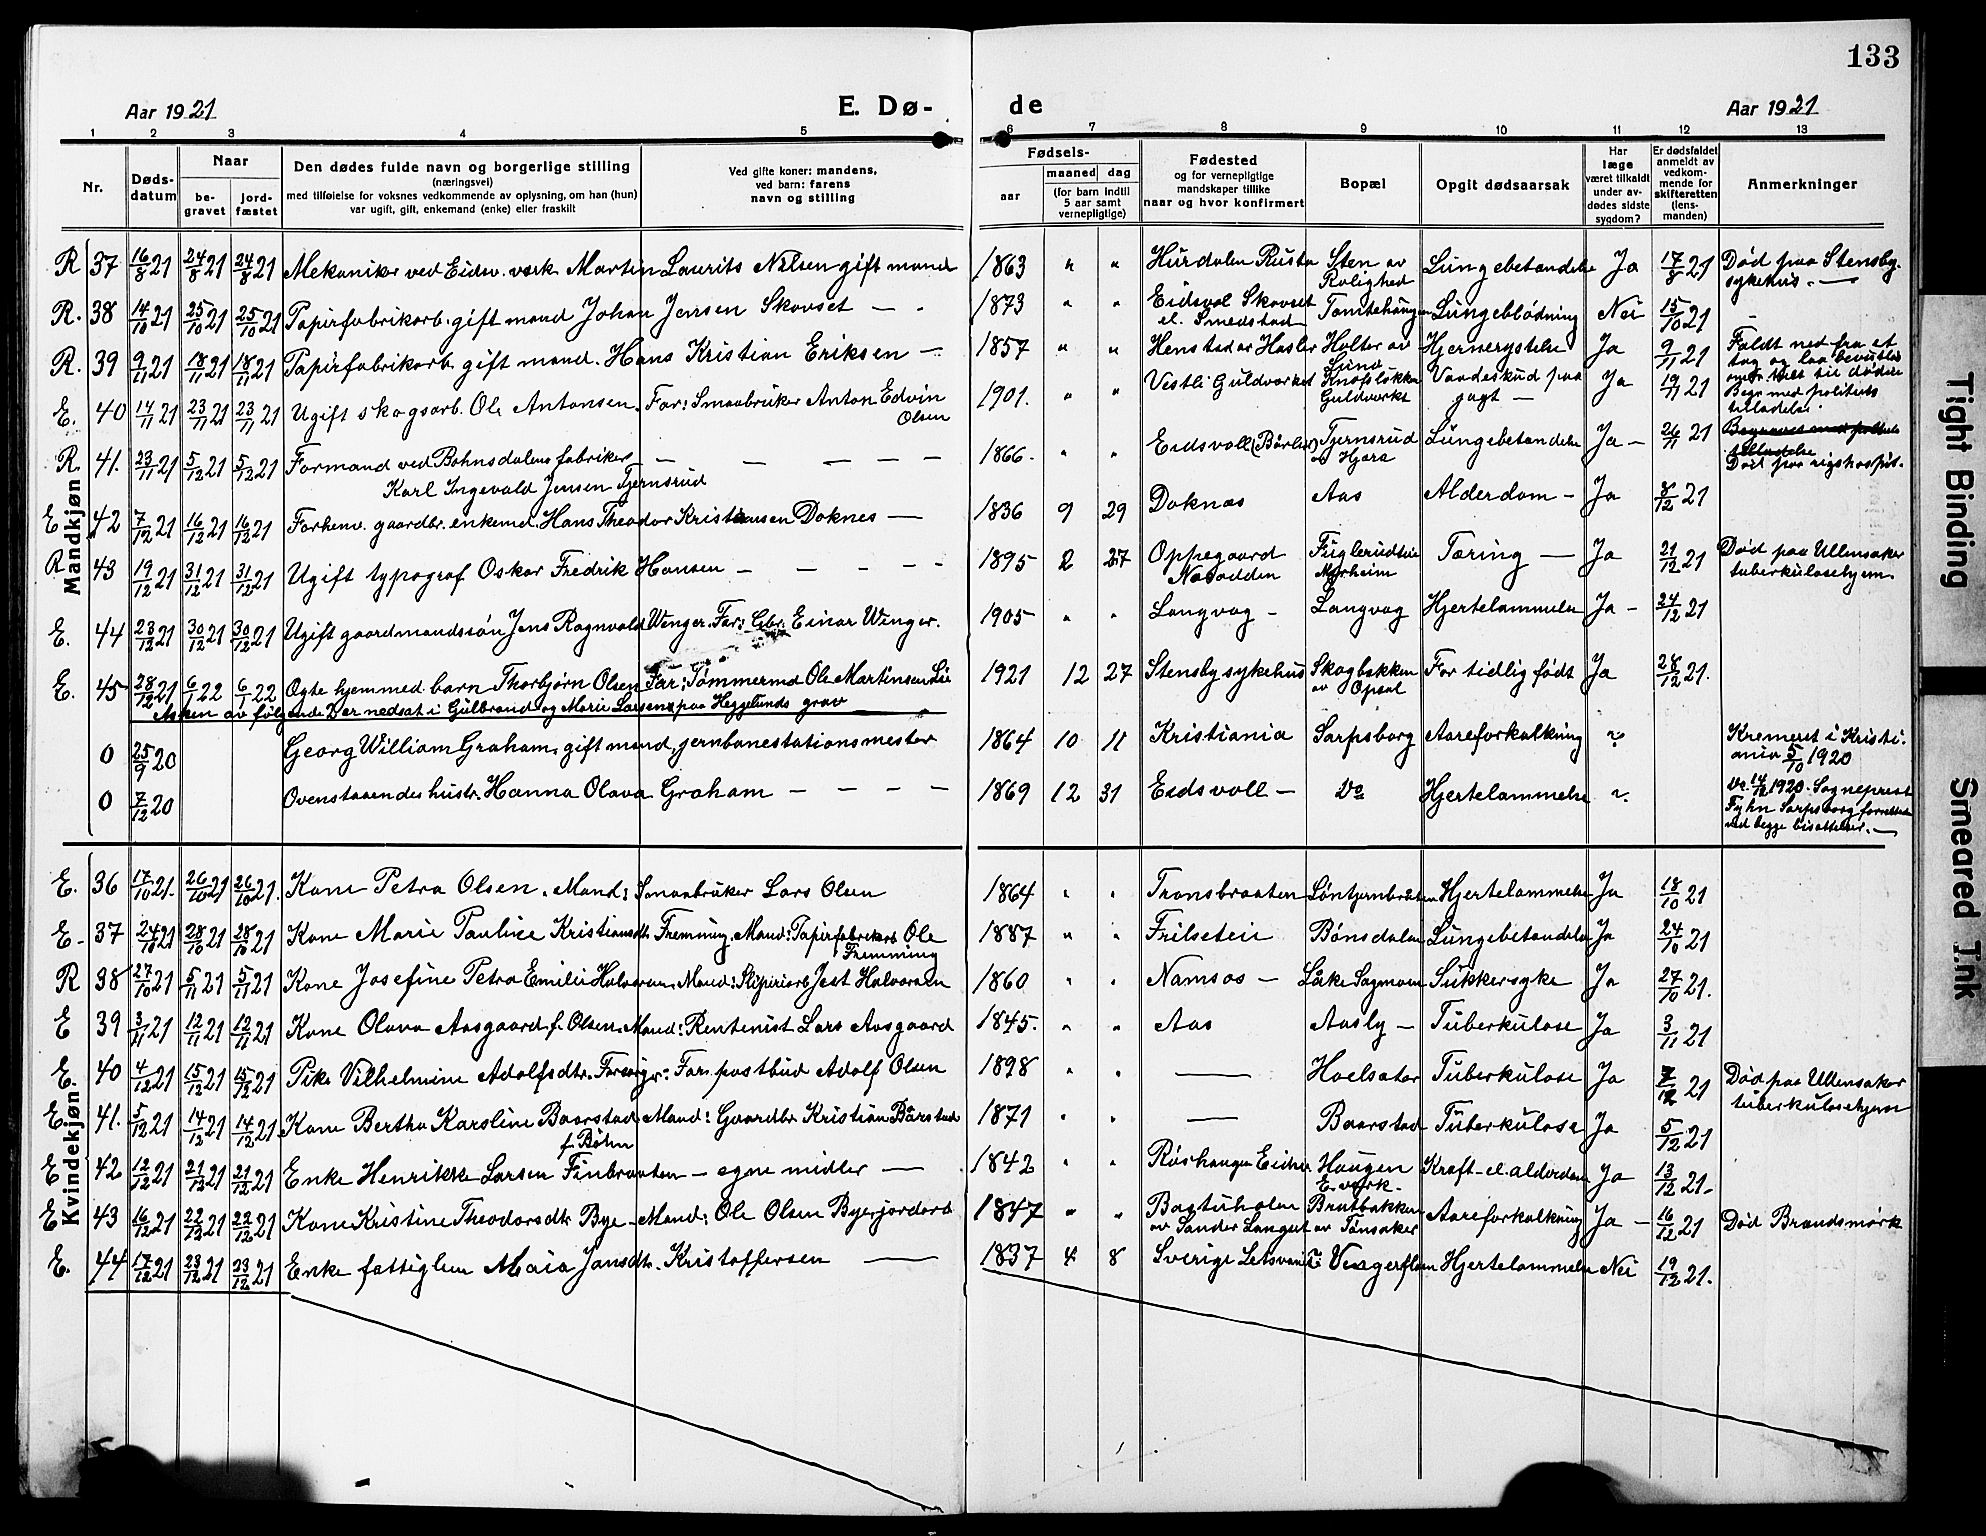 133
Aar 1921 E. Dø- de Aar 1921
1 2 3 4 5 6 7 8 9 10 11 12 13
Nr. Døds-datum Naar be-gravet jord-fæstet Den dødes fulde navn og borgerlige stilling (næringsvei) med tilføielse for voksnes vedkommende av oplysning, om han (hun) var ugift, gift, enkemand (enke) eller fraskilt Ved gifte koner: mandens, ved barn: farens navn og stilling Fødsels- aar maaned dag (for barn indtil 5 aar samt vernepligtige) Fødested og for vernepligtige mandskaper tillike naar og hvor konfirmert Bopæl Opgit dødsaarsak Har læge været tilkaldt under av-dødes sidste sygdom? Er dødsfaldet anmeldt av vedkom-mende for skifteretten (lens-manden) Anmerkninger
Mandkjøn
R 37 16/8 21 24/8 21 24/8 21 Mekaniker ved Eidsv. verk Martin Laurits Nilsen gift mand 1863 " " Hurdalen Rustø Sten av Rolighed Lungebetændelse Ja 17/8 21 Død paa Stensby sykehus. —
R. 38 14/10 21 25/10 21 25/10 21 Papirfabrikarb. gift mand Johan Jensen Skovset — 1873 " " Eidsvol Skovset el. Smedstad Tomtehaugen Lungeblödning Nei 15/10 21
R. 39 9/11 21 18/11 21 18/11 21 Papirfabrikarb. gift mand. Hans Kristian Eriksen — 1857 " " Henstad av Hasler Holter av Lund Hjernerystelse Ja 9/11 21 Faldt ned fra et tog og laa bevistløs til dødens
E. 40 14/11 21 23/11 21 23/11 21 Ugift skogsarb. Ole Antonsen. Far: Smaabruker Anton Edvin Olsen 1901. " " Vestli Guldverket Knofsløkka Guldverket Vaadeskud paa jagt — Ja 19/11 21 Begr. med politiets tilladelse.
R. 41. 23/11 21 5/12 21 5/12 21 Formand ved Bøhnsdalens fabriker — — — — — Karl Ingevald Jensen Tjernsrud 1866. " " Eidsvoll (Bårlie) Tjernsrud av Hjera Lungebetændelse Ja — 26/11 21 Begraves med politiets tilladelse Død paa rigshospit.
E 42 7/12 21 16/12 21 16/12 21 Forhenv. gaardbr. enkemd. Hans Theodor Kristiansen Doknes — 1836 9 29 Doknæs Aas Alderdom — Ja 8/12 21
R 43 19/12 21 31/12 21 31/12 21 Ugift typograf Oskar Fredrik Hansen — — — — — 1895 2 27 Oppegaard Nesodden Fuglerudtvie Myrheim Tæring — Ja 21/12 21 Død paa Ullensaker tuberkulosehjem
E. 44 23/12 21 30/12 21 30/12 21 Ugift gaardmandssön Jens Ragnvald Wenger. Far: Gbr. Einar Wenger. 1905 " " Langvag — Langvag Hjertelammelse Ja — 24/12 21
E. 45 28/12 21 6/1 22 6/1 22 Ægte hjemmed. barn Thorbjørn Olsen Far: Tømmermd Ole Martinsen Lie 1921 12 27 Stensby sykehus Skogbakken av Opsal For tidlig født Ja 28/12 21.
Asken av følgende 2 er nedsat i Gulbrand og Marie Larsens paa Hegglunds grav
0 25/9 20 Georg William Graham, gift mand, jernbanestationsmester 1864 10 11 Kristiania Sarpsborg Aareforkalkning ? Kremeret i Kristiania 5/10 1920
0 7/12 20 Ovenstaaendes hustr. Hanna Olava Graham — — — — 1869 12 31 Eidsvoll — Do Hjertelammelse ? Do 14/12 1920. Sogneprest Tyhn Sarpsborg forrettet ved begge bisættelser. —
Kvindekjøn
E. 36 17/10 21. 26/10 21 26/10 21. Kone Petra Olsen. Mand: Smaabruker Lars Olsen 1864 " " Transbraaten Løntjernbråten Hjertelammelse Ja 18/10 21
E. 37 24/10 21 28/10 21 28/10 21 Kone Marie Pauline Kristiansdtr. Fremming. Mand: Papirfabrikarb Ole Fremming 1887 " " Frilseteie Bønsdalen Lungebetændelse Ja 24/10 21
R 38 27/10 21 5/11 21 5/11 21 Kone Josefine Petra Emilie Halvorsen. Mand: Sliperiarb. Halvorsen 1860 " " Namsos — Låke Sagmoen Sukkersyke Ja 27/10 21.
E 39 3/11 21 12/11 21 12/11 21 Kone Olava Aasgaard f. Olsen. Mand: Rentenist Lars Aasgaard 1845. " " Aas Aasly — Tuberkulose Ja 3/11 21
E. 40 4/12 21 15/12 21 15/12 21 Pike Vilhelmine Adolfsdtr. Far: postbud Adolf Olsen 1898 " " — Hoelsæter Tuberkulose Ja 7/12 21 Død paa Ullensaker tuberkulosehjem
E 41. 5/12 21 14/12 21 14/12 21 Kone Bertha Karoline Baarstad Mand: Gaardbr. Kristian Bårstad f. Bøhn 1871 " " — Baarstad Tuberkulose Ja 5/12 21
E 42 12/12 21 21/12 21 21/12 21 Enke Henrikke Larsen Finbraaten — egne midler — 1842 " " Røshaugen Haugen E. verk. Kræft el. alderdom Ja 13/12 21.
E 43 16/12 21 22/12 21 22/12 21 Kone Kristine Theodorsdtr. Bye — Mand: Ole Olsen Bye jordarb 1847 " " Bagstuholen av Sander Langset Bratbakken av Tønsaker Aareforkalkning Ja — 16/12 21 Død Brandsmørk
E. 44 17/12 21 23/12 21 23/12 21 Enke fattiglem Maia Jansdtr. Kristoffersen — 1837 4 8 Sverige Vengerfloen Hjertelammelse Nei 19/12 21.
Tight Binding
Smeared Ink